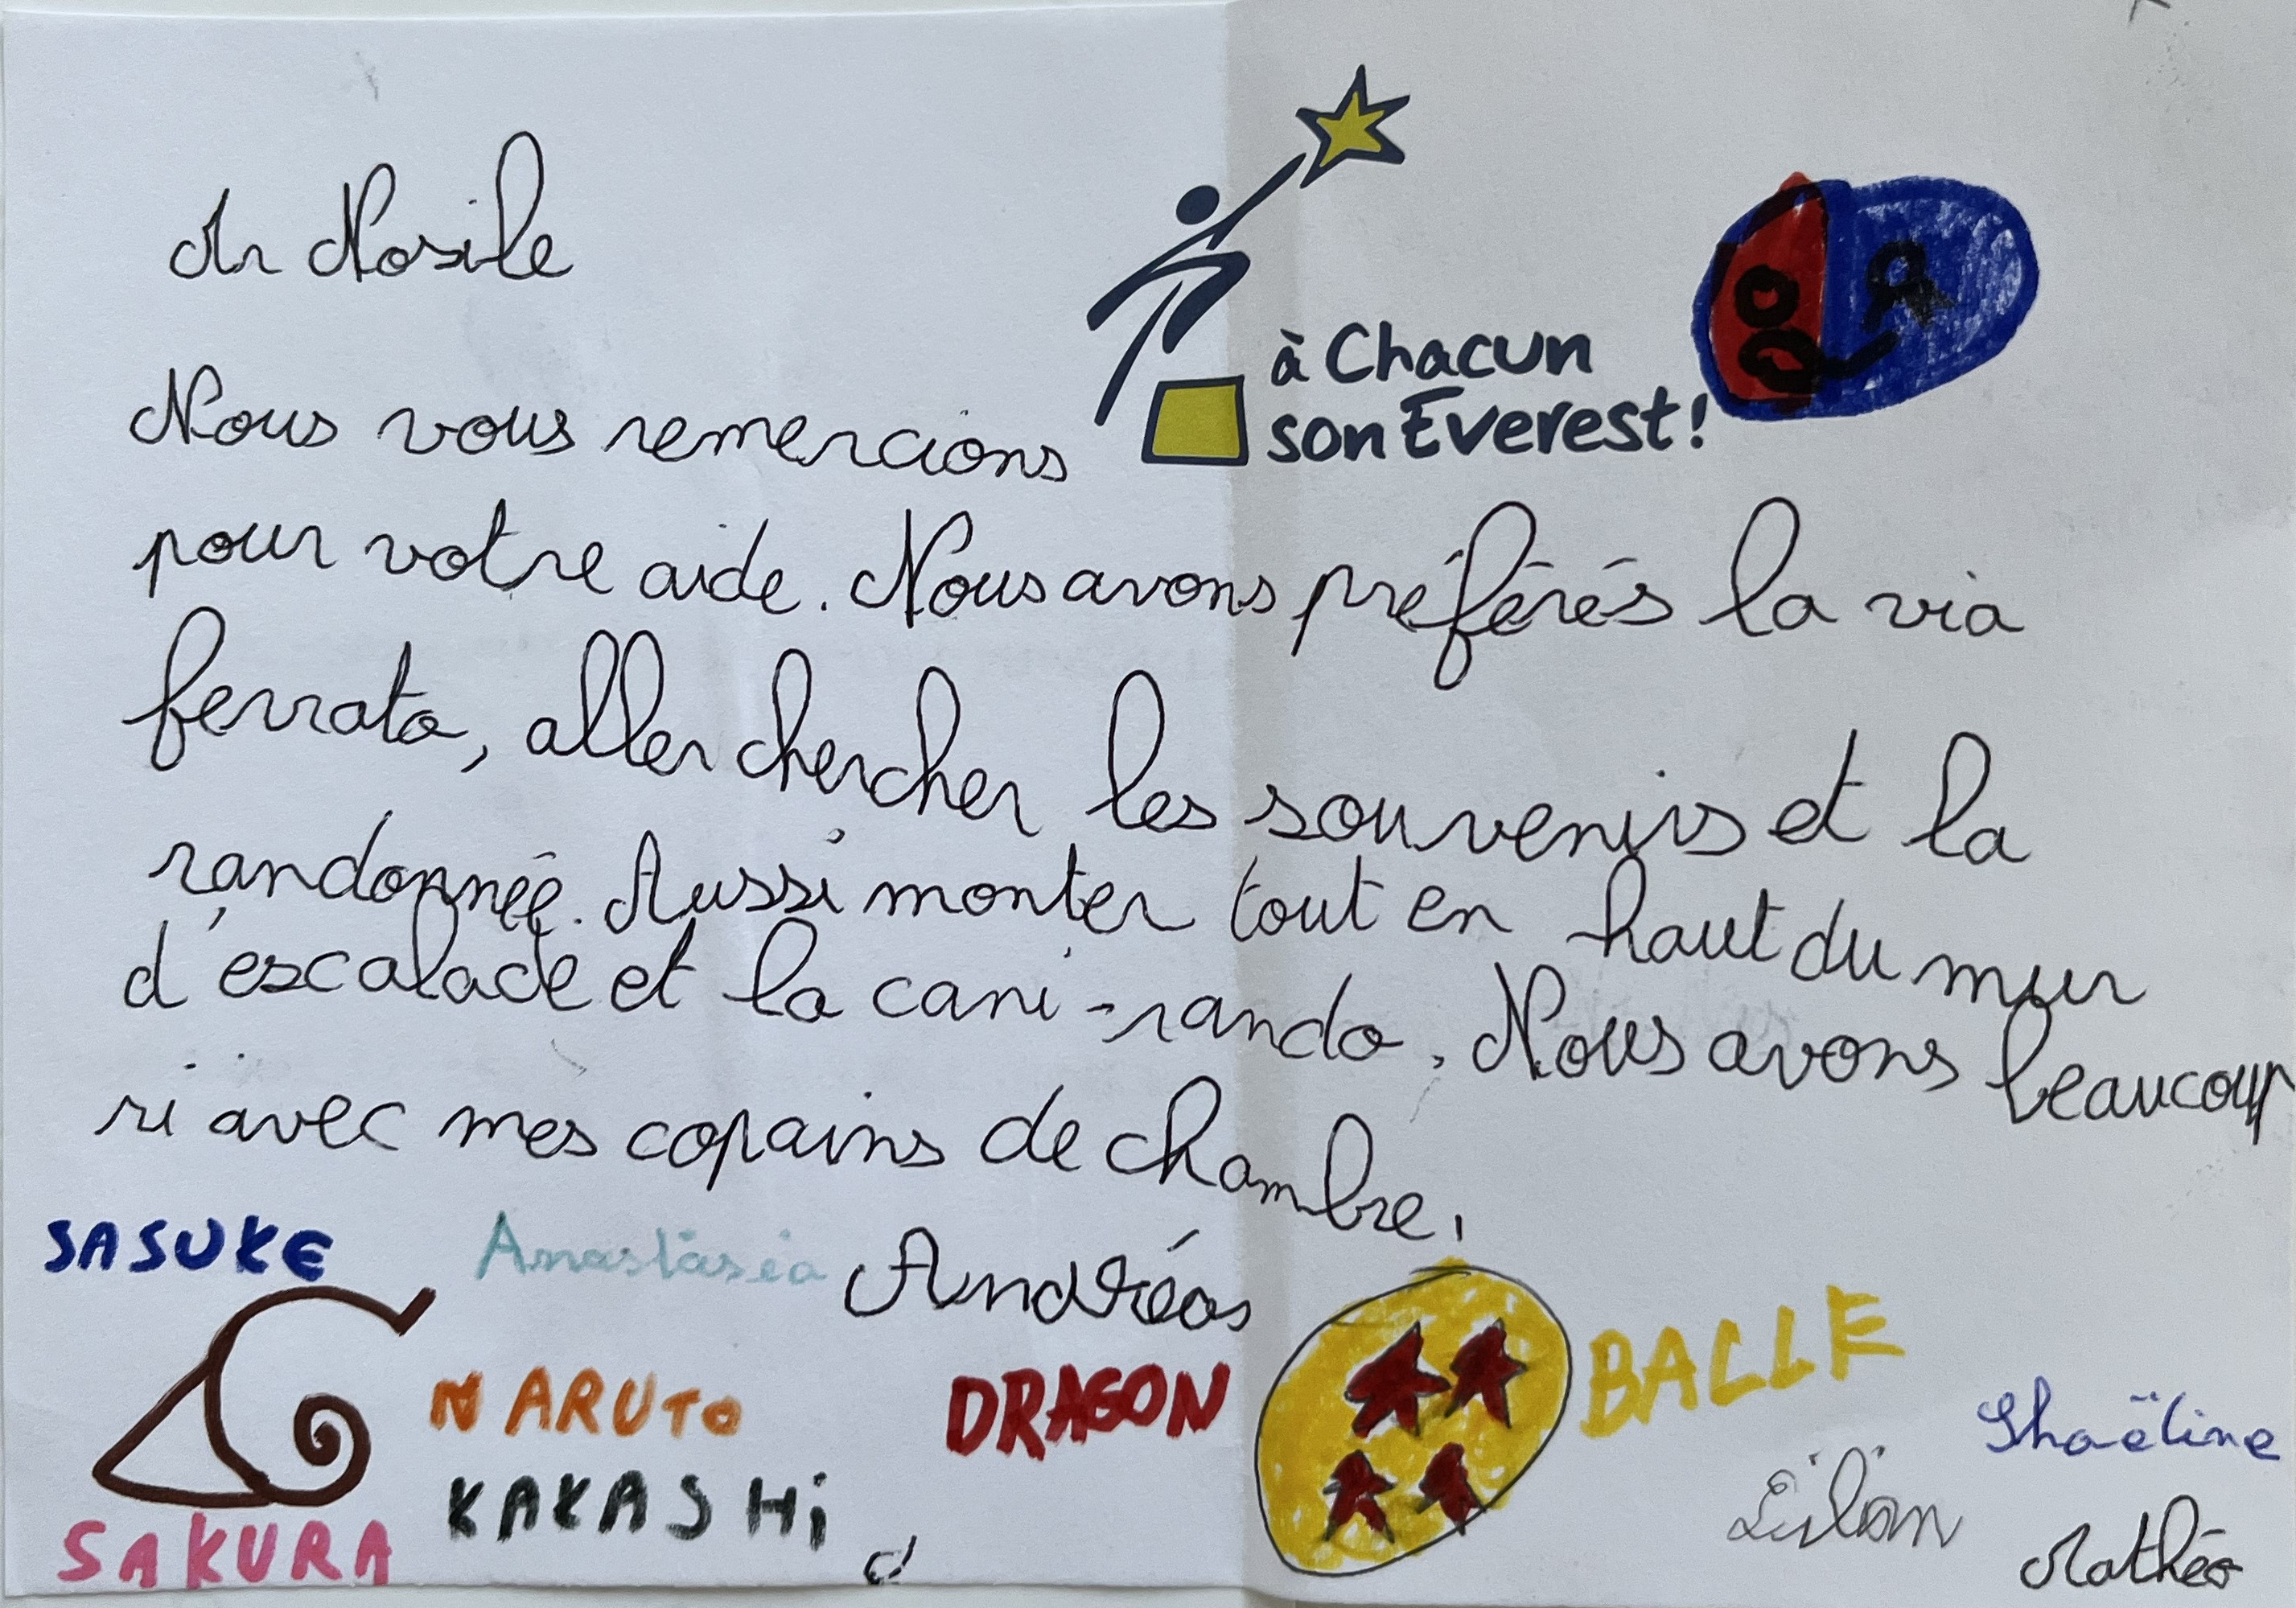 Mr Nosile
à Chacun
son Everest!
Nous vous remercions
pour votre aide. Nous avons préférés la via
ferrata, aller chercher les souvenirs et la
randonnée. Aussi monter tout en haut du mur
d'escalade et la cani-rando. Nous avons beaucoup
ri avec mes copains de chambre.
SASUKE
Anastasia
Andréas
NARUTO
DRAGON
BALLE
KAKASHi
SAKURA
Shaëline
Mathéo